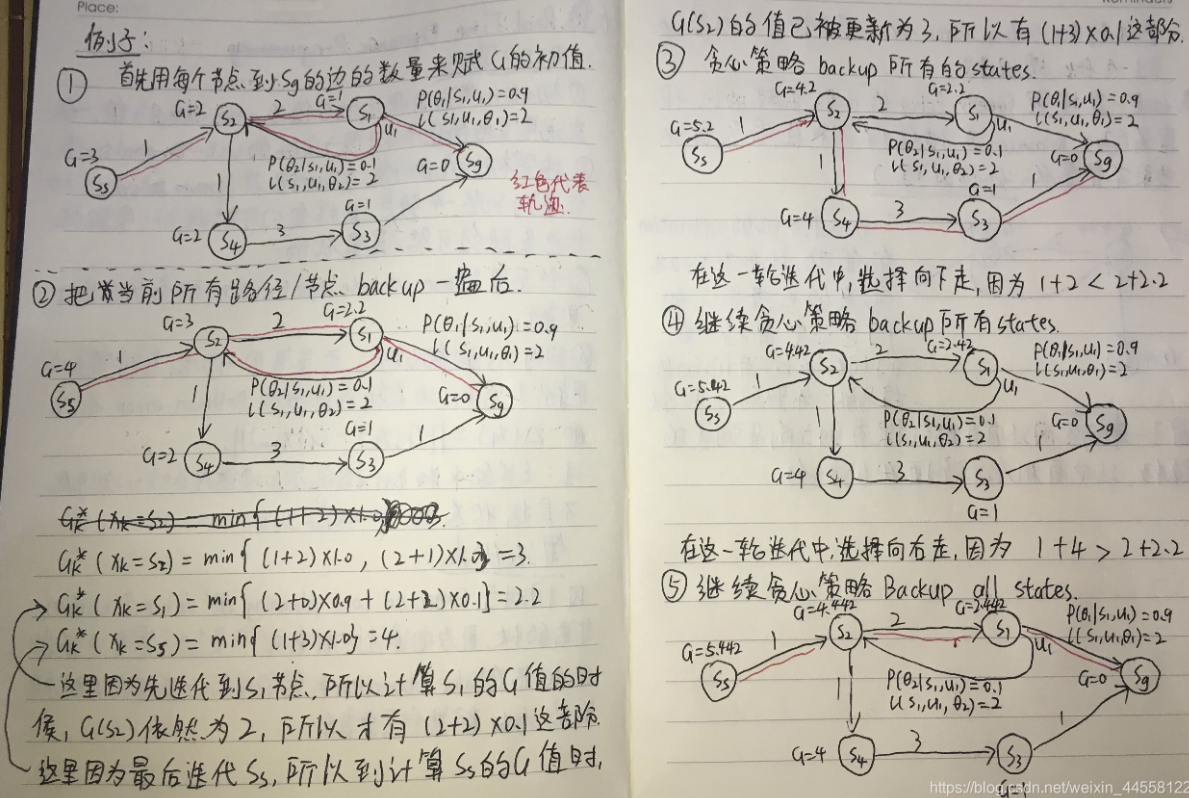 Place:
例子:
① 首先用每个节点到Sg的边的数量来赋G的初值.
G=2 S2 2 G=1 S1 P(θ1|S1,u1)=0.9
u1 l(S1,u1,θ1)=2
G=3 1 P(θ2|S1,u1)=0.1 G=0 Sg
Ss 1 l(S1,u1,θ2)=2
红色代表
轨迹.
G=1
G=2 S4 3 S3
② 把当前所有路径/节点 backup 一遍后.
G=3 2 G=2.2
S2 S1 P(θ1|S1,u1)=0.9
u1 l(S1,u1,θ1)=2
G=4 1 P(θ2|S1,u1)=0.1 G=0 Sg
Ss 1 l(S1,u1,θ2)=2
G=1 1
G=2 S4 3 S3
Gk*(xk=S2)=min{(1+2)×1.0
Gk*(xk=S2)=min{(1+2)×1.0,(2+1)×1.0}=3.
Gk*(xk=S1)=min{(2+0)×0.9+(2+2)×0.1}=2.2
Gk*(xk=Ss)=min{(1+3)×1.0}=4.
这里因为先迭代到S1节点,所以计算S1的G值的时
候,G(S2)依然为2,所以才有(2+2)×0.1这部分.
这里因为最后迭代Ss,所以到计算Ss的G值时,
G(S2)的值已被更新为3,所以有(1+3)×0.1这部分.
③ 贪心策略 backup 所有的states.
G=4.2 S2 2 G=2.2 S1 P(θ1|S1,u1)=0.9
u1 l(S1,u1,θ1)=2
G=5.2 1 P(θ2|S1,u1)=0.1 G=0 Sg
Ss 1 l(S1,u1,θ2)=2
G=1 1
G=4 S4 3 S3
在这一轮迭代中,选择向下走,因为 1+2<2+2.2
④ 继续贪心策略 backup 所有states.
G=4.42 S2 2 G=2.42 S1 P(θ1|S1,u1)=0.9
u1 l(S1,u1,θ1)=2
G=5.42 1 P(θ2|S1,u1)=0.1 G=0 Sg
Ss 1 l(S1,u1,θ2)=2
1
G=4 S4 3 S3
G=1
在这一轮迭代中,选择向右走,因为 1+4>2+2.2
⑤ 继续贪心策略 Backup all states.
G=4.442 S2 2 G=2.442 S1 P(θ1|S1,u1)=0.9
u1 l(S1,u1,θ1)=2
G=5.442 1 P(θ2|S1,u1)=0.1 G=0 Sg
Ss 1 l(S1,u1,θ2)=2
1
G=4 S4 3 S3
G=1
https://blog.csdn.net/weixin_44558122